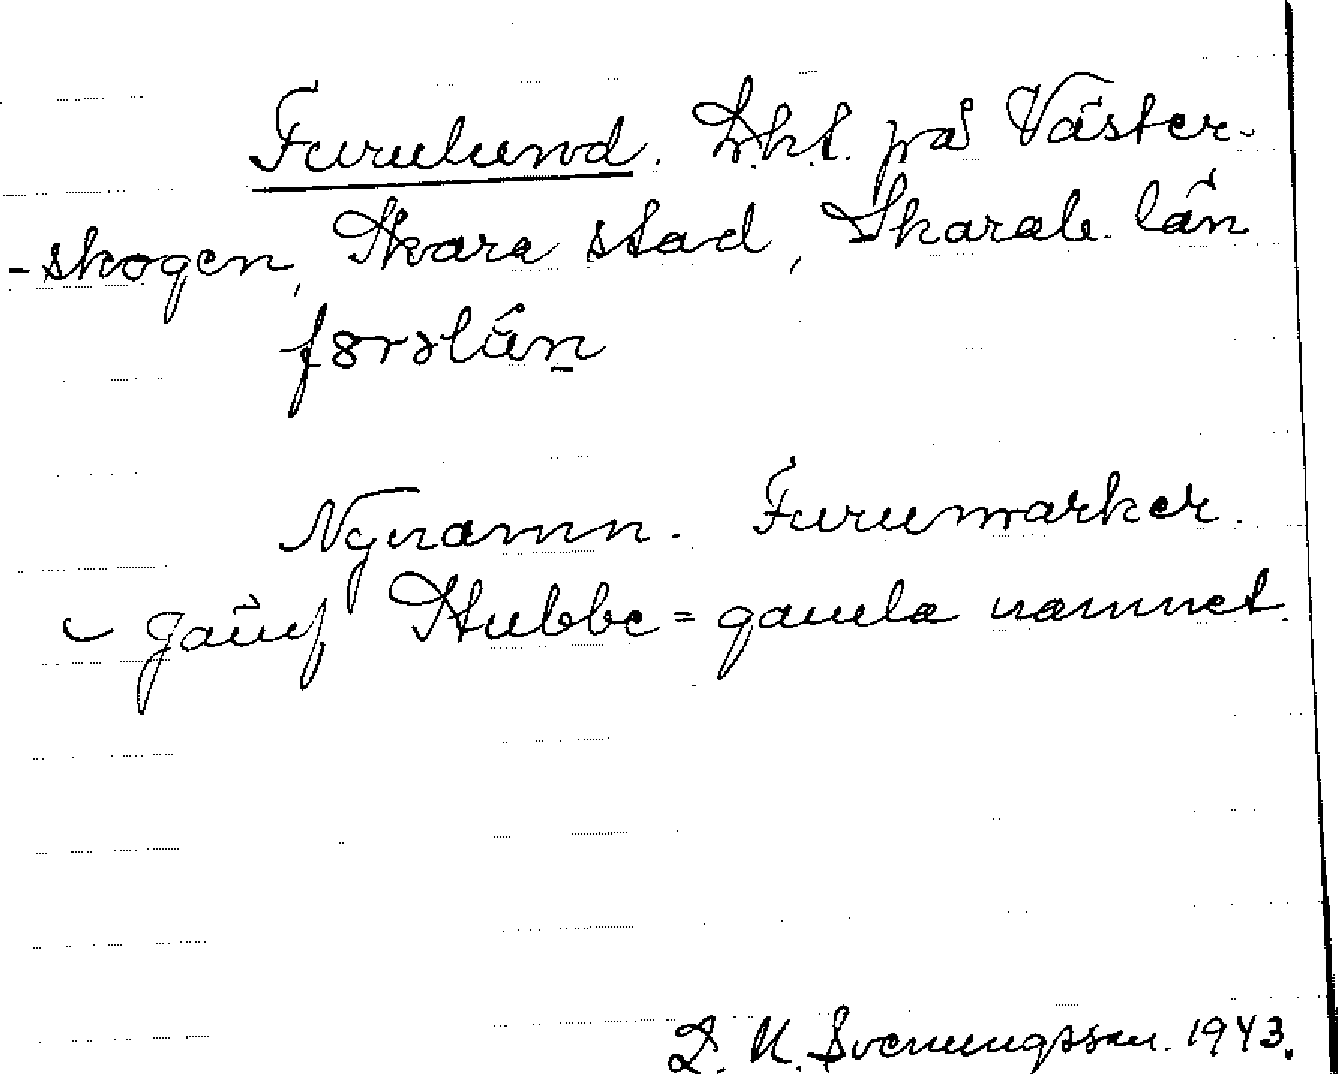 Furulund. Lht. på Väster-
-skogen, Skara stad, Skarab. län
førslún
Nynamn. Furumarker.
Jämf Stubbe = gamla namnet.
D. N. Svenungsson. 1943.